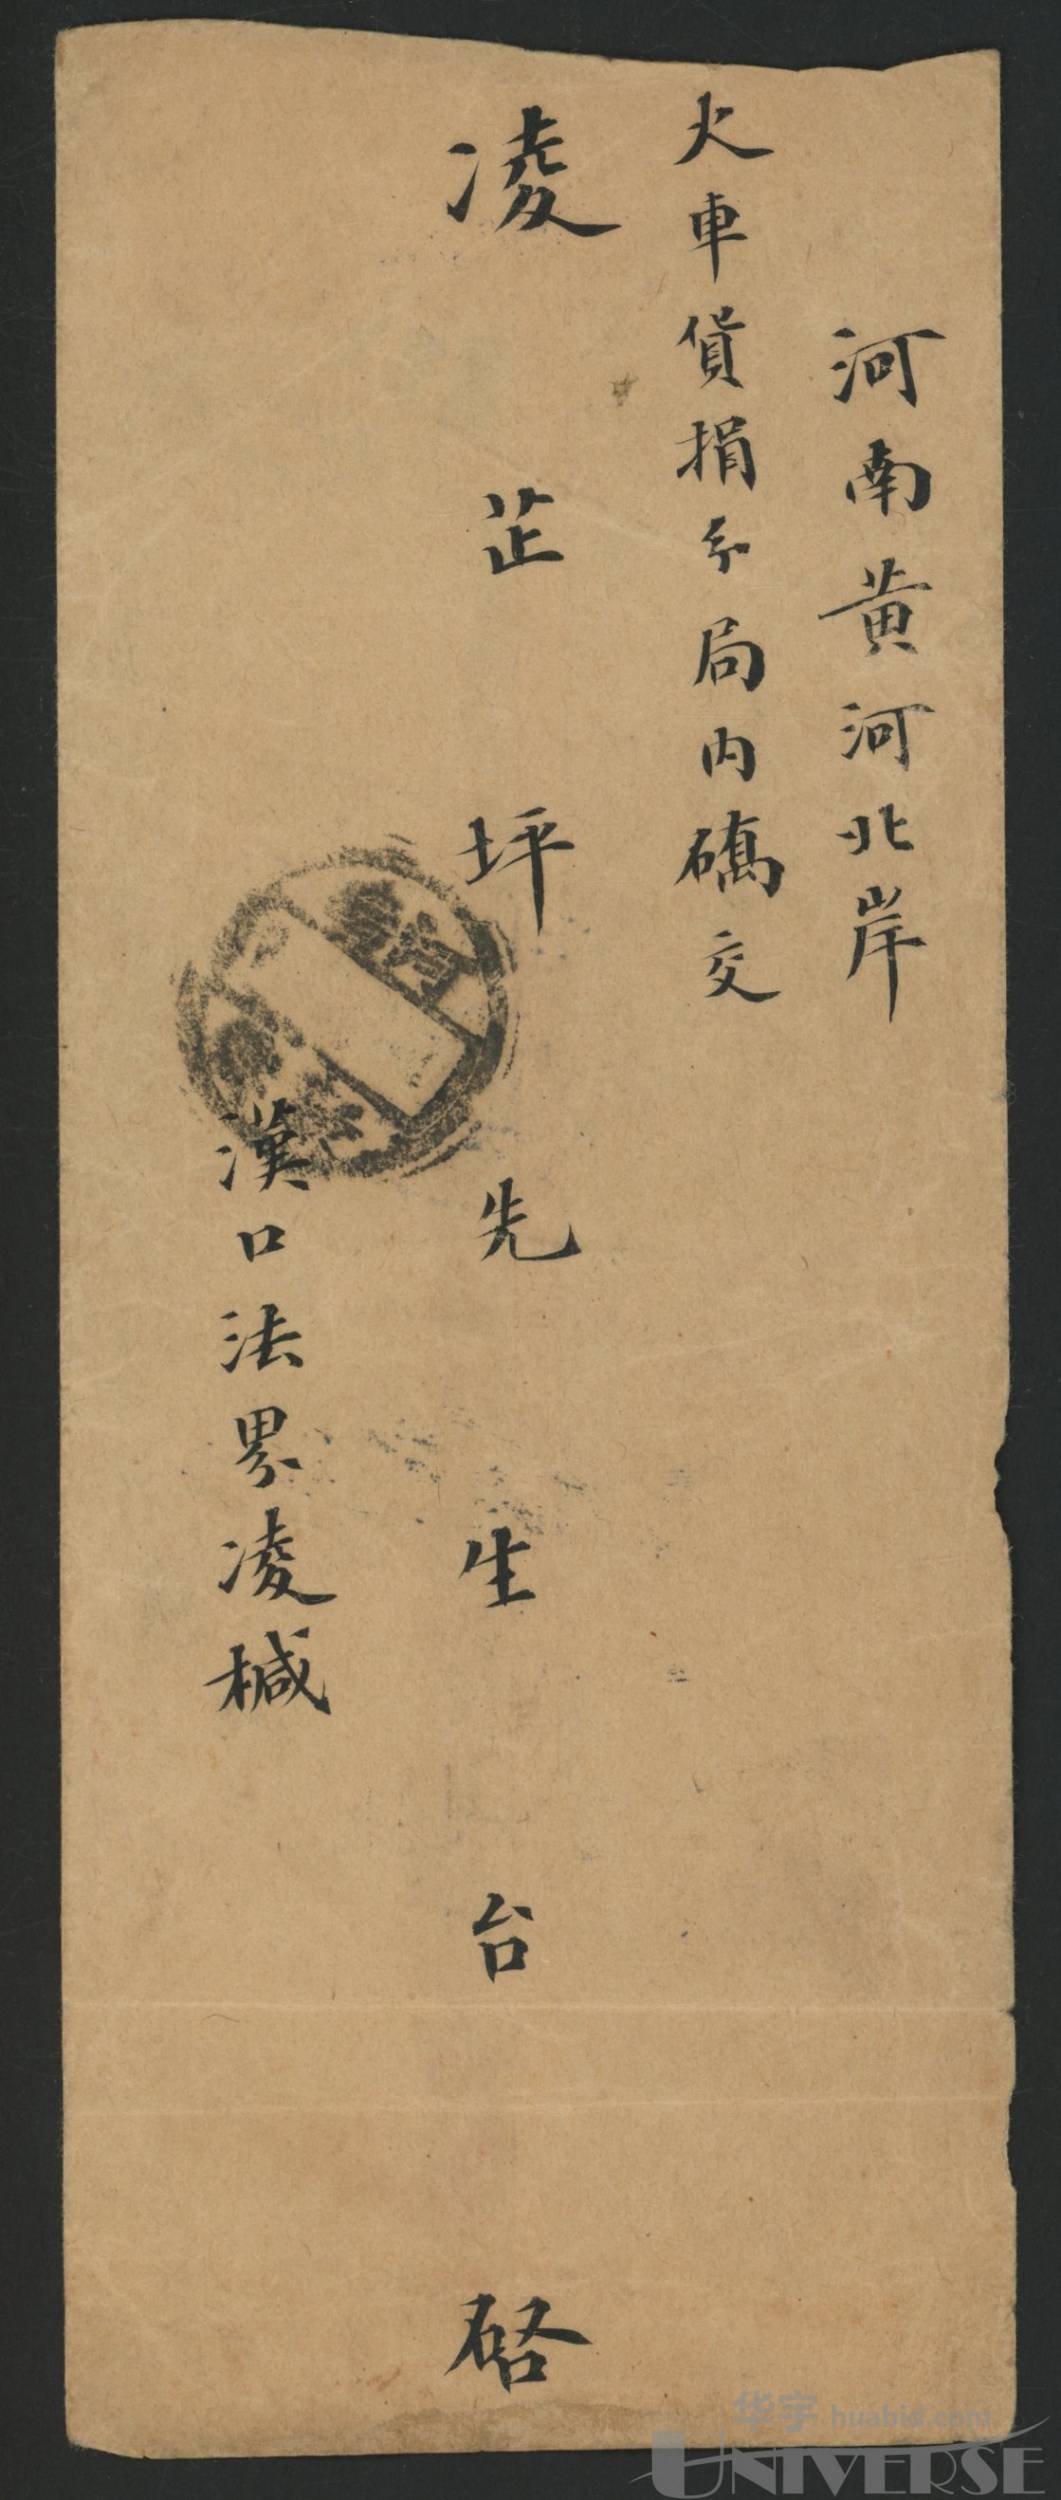 河南黄河北岸
火車貨捐分局内確交
凌芷坪先生台啓
漢口法界凌椷
华宇 huabid.com
UNIVERSE